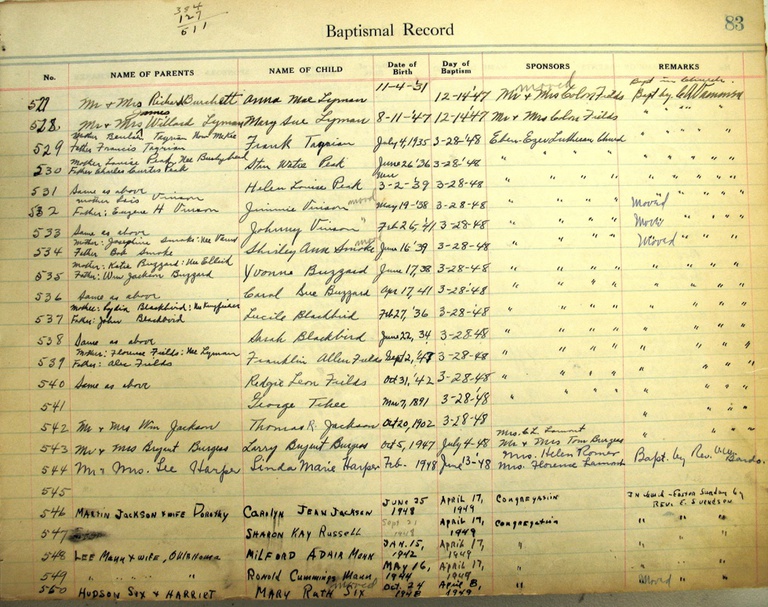 354
127
511
Baptismal Record
83
No. NAME OF PARENTS NAME OF CHILD Date of Birth Day of Baptism SPONSORS REMARKS
Bapt in Church.
527 Mr & Mrs Richard Burchett Anna Mae Lyman 11-4-'31 12-14-'47 Mr & Mrs Colon Fields moved Bapt by
James
528. Mr & Mrs Willard Lyman Mary Sue Lyman 8-11-'47 12-14-47 Mr & Mrs Colon Fields " " "
Mother Beulah Tagrian
529 Father Francis Tagrian Frank Tagrian July 4, 1935 3-28-'48 Eben-Ezer Lutheran Church " " "
Mother Louise Peak, Nee Bushyhead
530 Father Charles Curtis Peak Stan Watie Peak June 26 '36 3-28-'48 " " " " " "
531 Same as above Helen Louise Peak 3-2-'39 3-28-48 " " " " " "
mother Lois Vinson
532 Father: Eugene H Vinson Jimmie Vinson moved May 19-'38 3-28-'48 " " " Moved " "
533 Same as above Johnny Vinson " Feb 26-41 3-28-'48 " " " Moved " "
Mother: Josephine Smoke: Nee
534 Father Bob Smoke Shirley Ann Smoke June 16 '39 3-28-'48 " " " Moved " "
Mother: Katie Buzzard: Nee
535 Father: Wm Jackson Buzzard Yvonne Buzzard June 17, 38 3-28-'48 " " " " " "
536 Same as above Carol Sue Buzzard Apr 17, 41 3-28-'48 " " " " " "
Mother: Lydia Blackbird: Nee Kingfisher
537 Father: John Blackbird Lucile Blackbird Feb 27, '36 3-28-'48 " " " " " "
538 Same as above Sarah Blackbird June 22, 34 3-28-'48 " " " " " "
Mother: Florence Fields: Nee Lyman
539 Father: Alex Fields Franklin Allen Fields Sept 2, '45 3-28-'48 " " " " " "
540 Same as above Leon Fields Oct 31, '42 3-28-48 " " " " " "
541 George Tehee Mar 7, 1891 3-28-'48 " " " " " "
542 Mr & Mrs Wm Jackson Thomas R. Jackson Oct 20, 1902 3-28-48 " "
Mrs. C. L. Lamont
543 Mr & Mrs Bryant Burgess Larry Bryant Burgess Oct 5, 1947 July 4-48 Mr & Mrs Tom Burgess " " "
Mrs. Helen Romer
544 Mr & Mrs. Lee Harper Linda Marie Harper Feb - 1948 June 13-'48 Mrs. Florence Lamont Bapt. by Rev.
545
546 Martin Jackson & wife Dorothy Carolyn Jean Jackson June 25 1948 April 17, 1949 Congregation Easter Sunday by Rev. E. Svendsen
547 Sharon Kay Russell Sept 21 April 17, 1949 Congregation " "
548 Lee Mann & wife, Oklahoma Milford Adair Mann Jan. 15, 1942 April 17, 1949 " " "
549 " " " " Ronold Cummings Mann May 16, 1944 April 17, 1949 " " "
550 Hudson Six & Harriet Mary Ruth Six moved Oct. 24 1948 April 8, 1949 " Moved " "